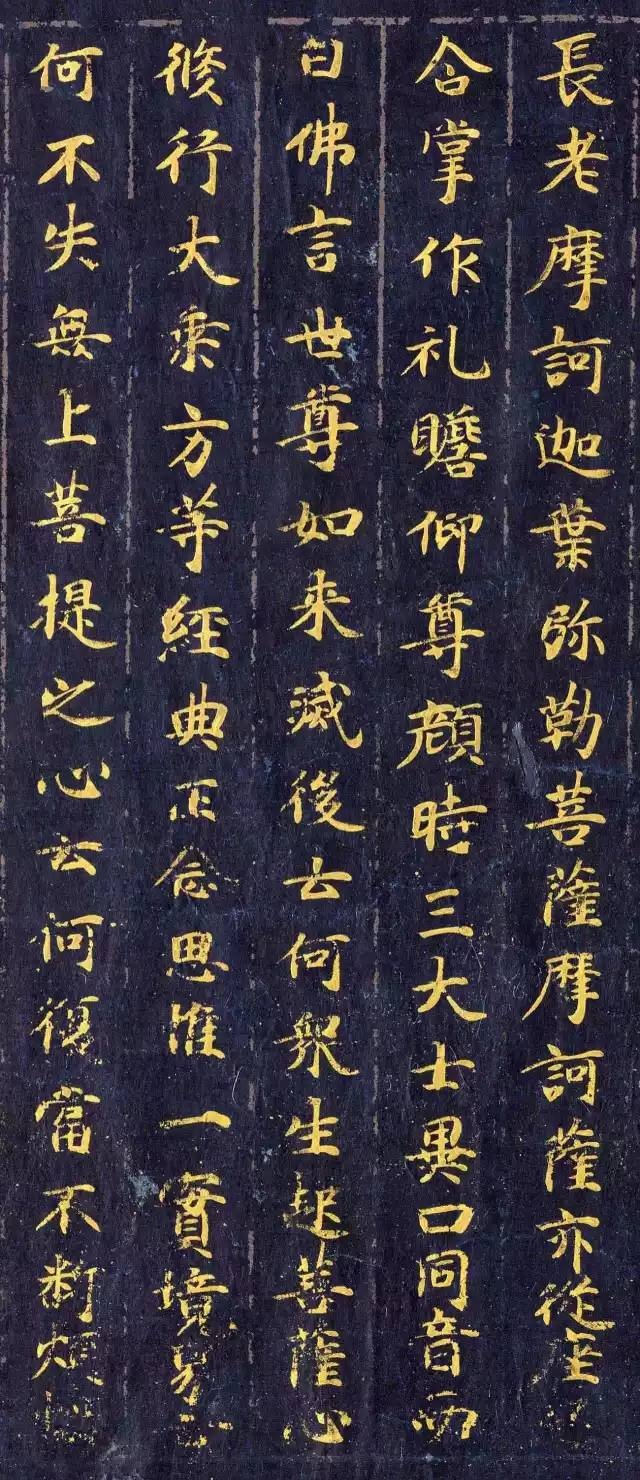 長老摩訶迦葉弥勒菩薩摩訶薩亦從座
合掌作礼瞻仰尊顔時三大士異口同音而
白佛言世尊如来滅後云何衆生起菩薩心
修行大乗方等經典正念思惟一實境界
何不失無上菩提之心云何復當不断煩